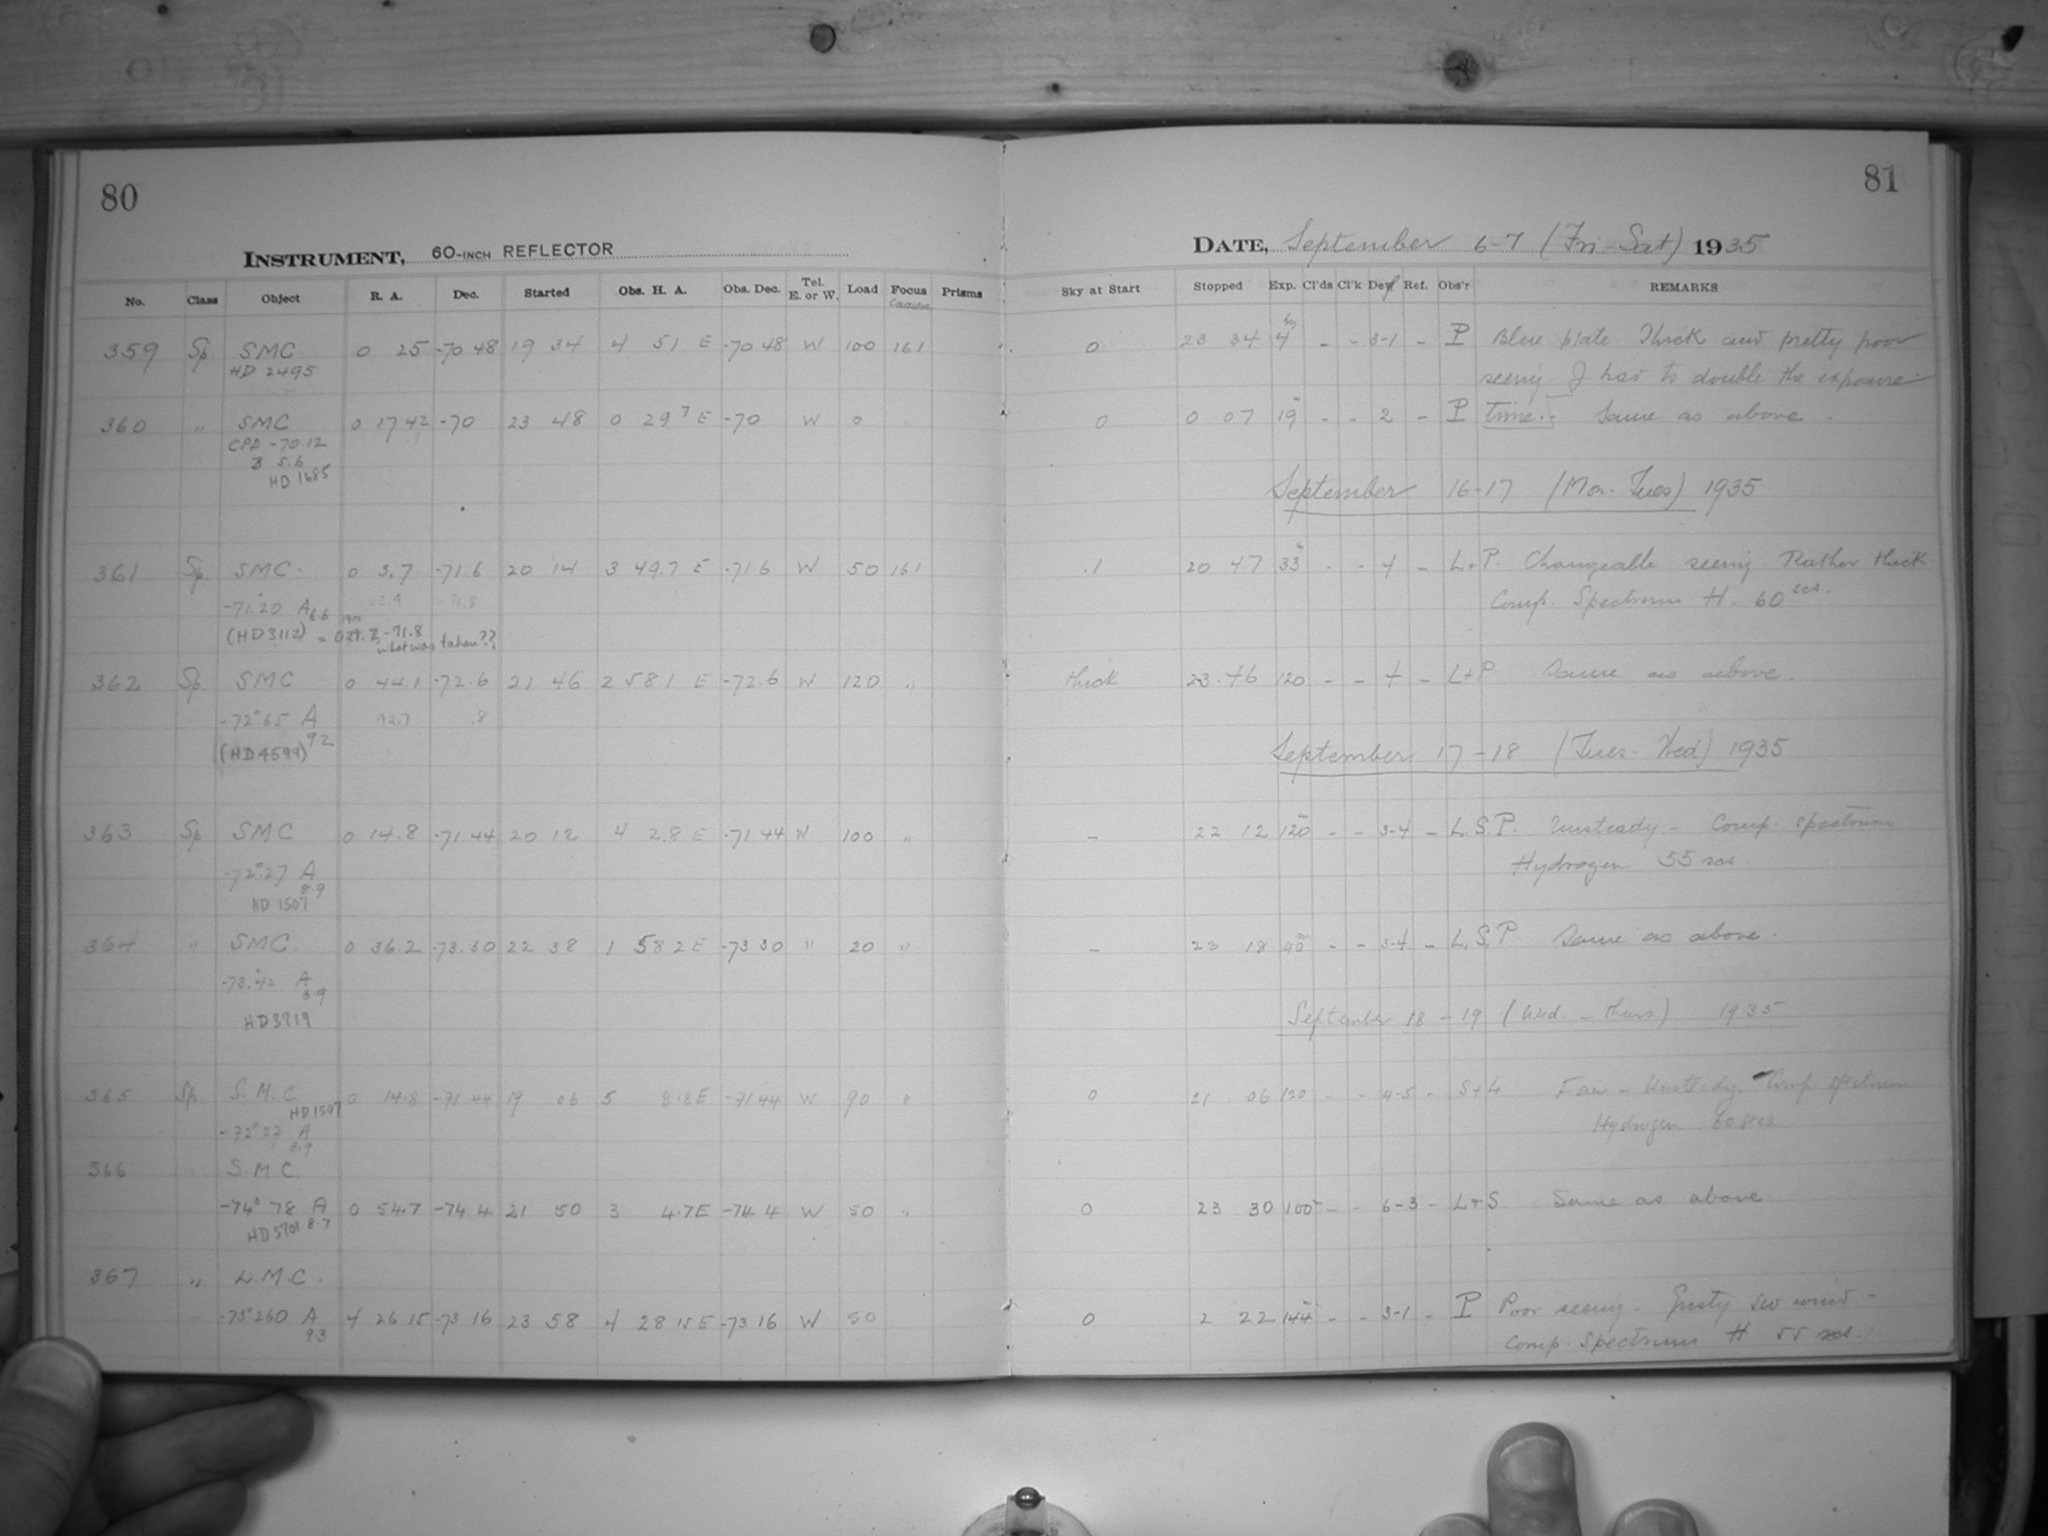 80
81
INSTRUMENT, 60-INCH REFLECTOR
DATE, September 6-7 (Fri-Sat) 1935
No. Class Object R. A. Dec. Started Obs. H. A. Obs. Dec. Tel. E. or W. Load Focus Prisms Sky at Start Stopped Exp. Cl'ds Cl'k Dew Ref. Obs'r REMARKS
359 Sp SMC 0 25 -70 48 19 34 4 51 E -70 48 W 100 161 0 23 34 4 - - 3-1 - P Blue plate. Thick and pretty poor
HD 2495 seeing. I had to double the exposure
360 " SMC 0 17 42 -70 23 48 0 29.7 E -70 W 0 " 0 0 07 19 - - 2 - P time. - Same as above.
CPD -70.12
B 5.6
HD 1685
September 16-17 (Mon. Tues) 1935
361 Sp. SMC 0 3.7 -71.6 20 14 3 49.7 E -71.6 W 50 161 .1 20 47 33 - - 4 - L+P. Changeable seeing. Rather thick
-71.20 A 6.6 Comp. Spectrum H. 60 secs.
(HD3112) -71.8
what was taken??
362 Sp. SMC 0 44.1 -72.6 21 46 2 58.1 E -72.6 W 120 " thick 23.46 120 - - 4 - L+P Same as above.
-72°65 A 42.7 .8
(HD4599) 9.2
September 17-18 (Tues-Wed) 1935
363 Sp. SMC 0 14.8 -71 44 20 12 4 2.8 E -71 44 W 100 " - 22 12 120 - - 3-4 - L.S.P. Unsteady - Comp. spectrum
-72°27 A 8.9 Hydrogen 55 secs
HD 1507
364 " SMC 0 36.2 -73.30 22 38 1 58.2 E -73 30 " 20 " - 23 18 40 - - 3-4 - L.S.P Same as above.
-73.42 A 6.9
HD3719
September 18-19 (Wed. - Thurs) 1935
365 Sp. S.M.C 0 14.8 -71 44 19 06 5 8.8 E -71 44 W 90 " 0 21 06 120 - - 4-5 - S+L Fair - Unsteady. Comp. spectrum
HD1507
-72°27 A 8.9 Hydrogen 60 secs
366 S.M.C.
-74° 78 A 0 54.7 -74 4 21 50 3 4.7 E -74 4 W 50 " 0 23 30 100 - - 6-3 - L+S Same as above
HD5701 8.7
367 " L.M.C.
-73°260 A 4 26 15 -73 16 23 58 4 28 15 E -73 16 W 50 0 2 22 144 - - 3-1 - P Poor seeing - Gusty SW wind -
9.3 Comp. Spectrum H 55 secs.